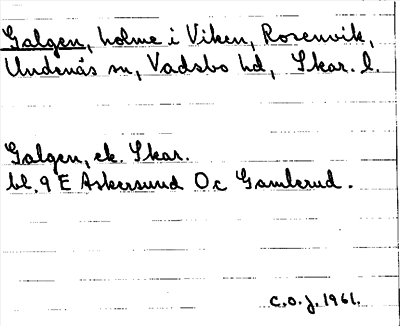 Galgen, holme i Viken, Rosenvik,
Undenäs sn, Vadsbo hd, Skar. l.
Galgen, ek. Skar.
bl. 9 E Askersund Oc Gamlerud.
C.O.J. 1961.